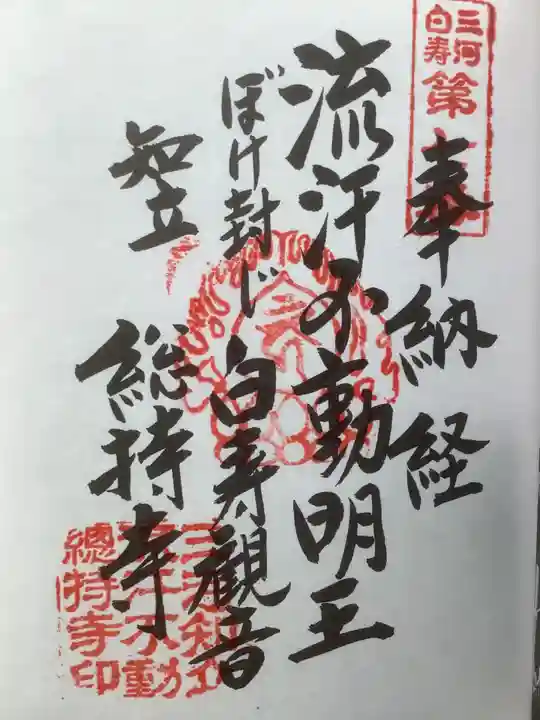 三河
白寿
第
奉納経
流汗不動明王
ぼけ封じ白寿観音
知立
総持寺
三河知立
流汗不動
總持寺印